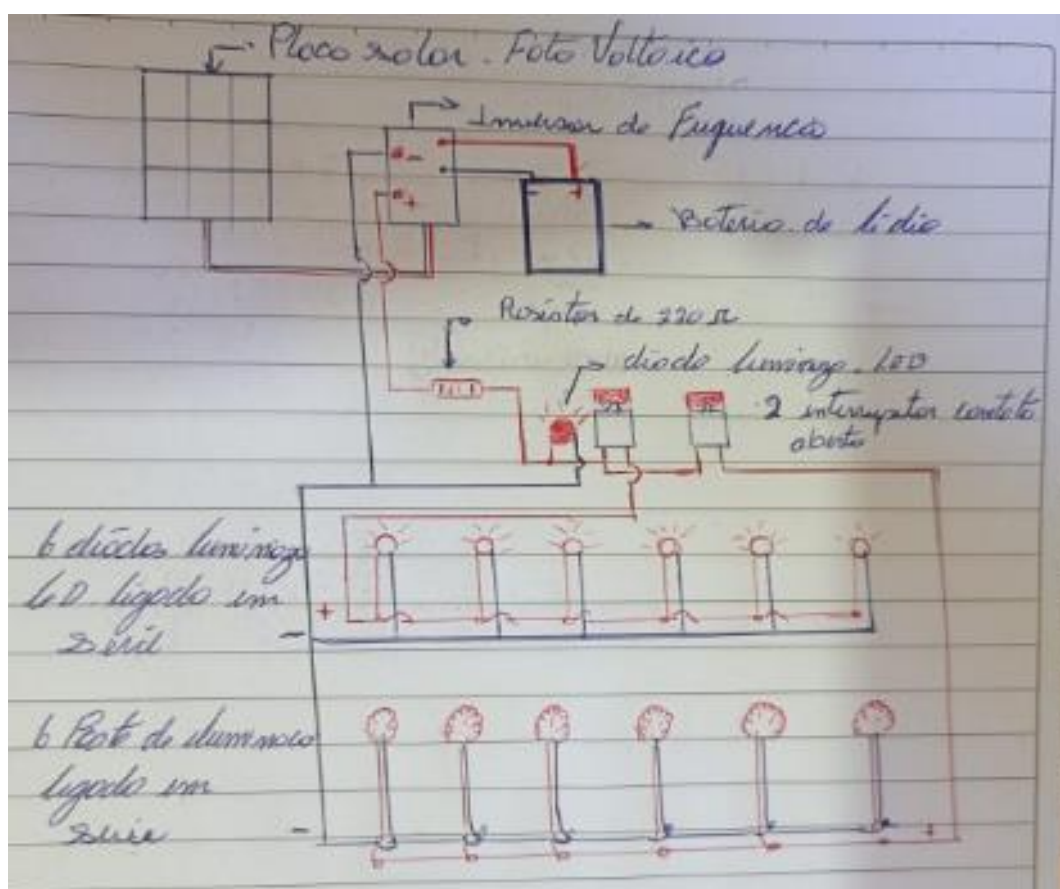 Placa solar. Foto Voltaica
- +
Inversor de Fuquencia
- +
Bateria de lidio
Resistor de 220 Ω
diodo luminozo. LED
2 interruptor contato
aberto
6 diódos luminozo
LED ligado em
serie
+
-
6 Poste de iluminacao
ligado em
serie
- +